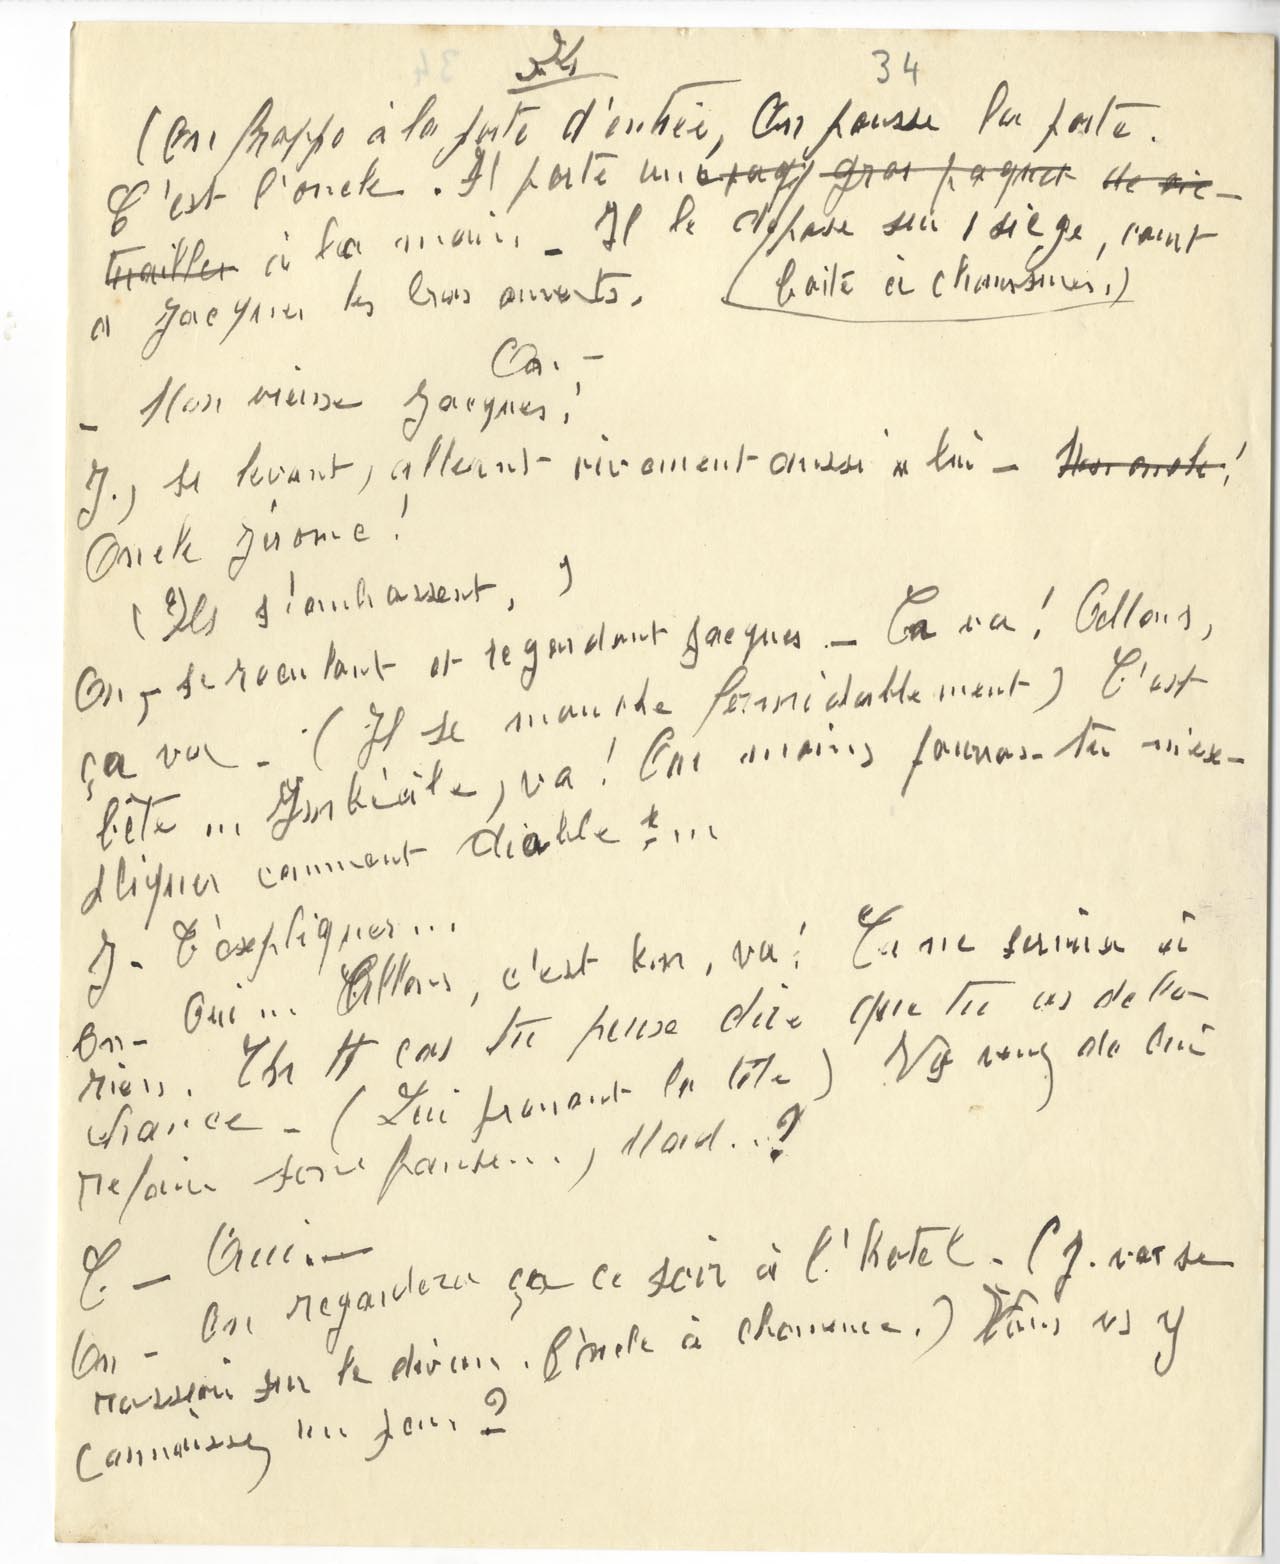 34
(On frappe à la porte d'entrée, On pousse la porte.
C'est l'oncle. Il porte un gros paquet de vic-
tuailles à la main - Il le dépose sur 1 siège, court
à Jacques les bras ouverts. (boîte à chaussures.)
On. -
- Mon vieux Jacques!
J., se levant, allant vivement aussi à lui - Mon oncle!
Oncle Jérome!
(Ils s'embrassent.)
On, - se reculant et regardant Jacques - Ça va! Allons,
ça va - (Il se mouche formidablement) C'est
bête ... Imbécile, va! Au moins pourras-tu m'ex-
pliquer comment diable ...
J - T'expliquer...
On - Oui ... Allons, c'est bon, va! Ça ne servira à
rien. En tt cas tu peux dire que tu as de la
chance - (Lui prenant la tête) Vs venez de lui
refaire son panse..., Mad...?
C. - Oui. -
On - On regardera ça ce soir à l'hotel - (J. va se
rasseoir sur le divan. L'oncle à                ) Vous vs y
connaissez un peu?